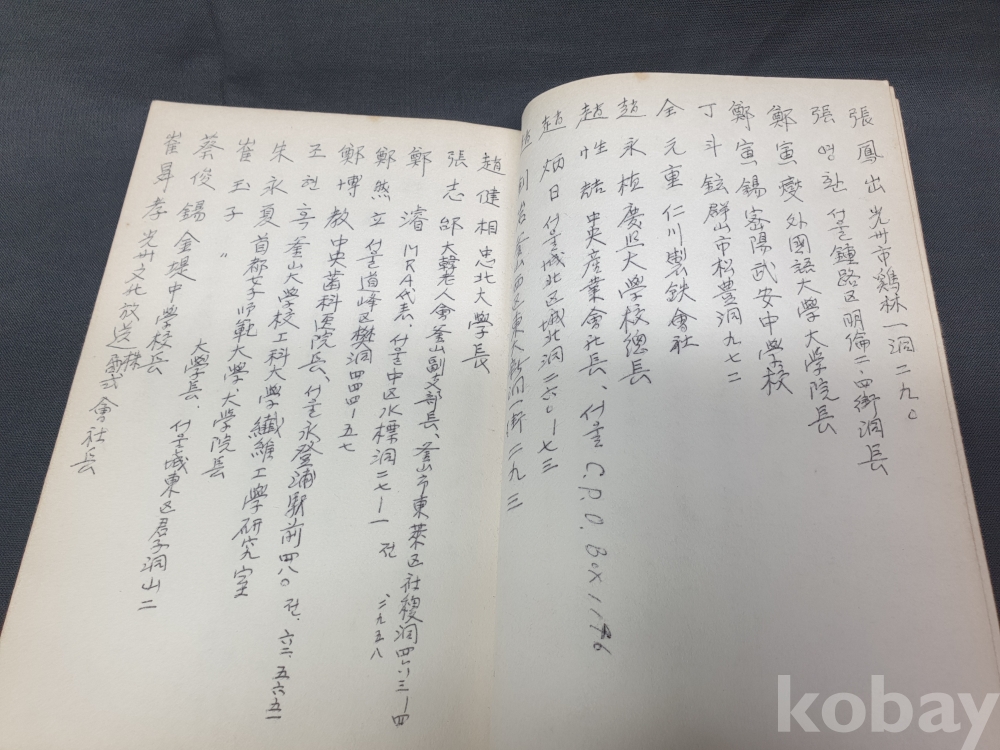 張鳳出 光州市鷄林一洞二九〇
張영환 서울鍾路区明倫二、四街洞長
鄭寅燮 外國語大学大学院長
鄭寅錫 密陽武安中学校
丁斗鉉 群山市松豊洞九七二
全元重 仁川製鉄會社
趙永植 慶熙大学校總長
趙性喆 中央産業會社長、서울 C.P.O. Box 1196
趙炳日 서울城北区城北洞二六〇ー七三
趙健相 忠北大学長
張志邰 大韓老人會釜山副支部長、釜山市東萊区社稷洞四六三ー四
鄭濬 MRA代表、서울中区水標洞二七ー一 전 二九五八
鄭然立 서울道峰区樊洞四四四ー五七
鄭博教 中央歯科医院長、서울永登浦駅前四八〇 전、六二、五六五一
王현혹 釜山大学校工科大学纖維工学研究室
朱永夏 首都女子師範大学、大学院長
崔玉子 〃 大學長、서울城東区君子洞山二
蔡俊錫 金堤中学校長
崔昇孝 光州文化放送株式會社長
kobay